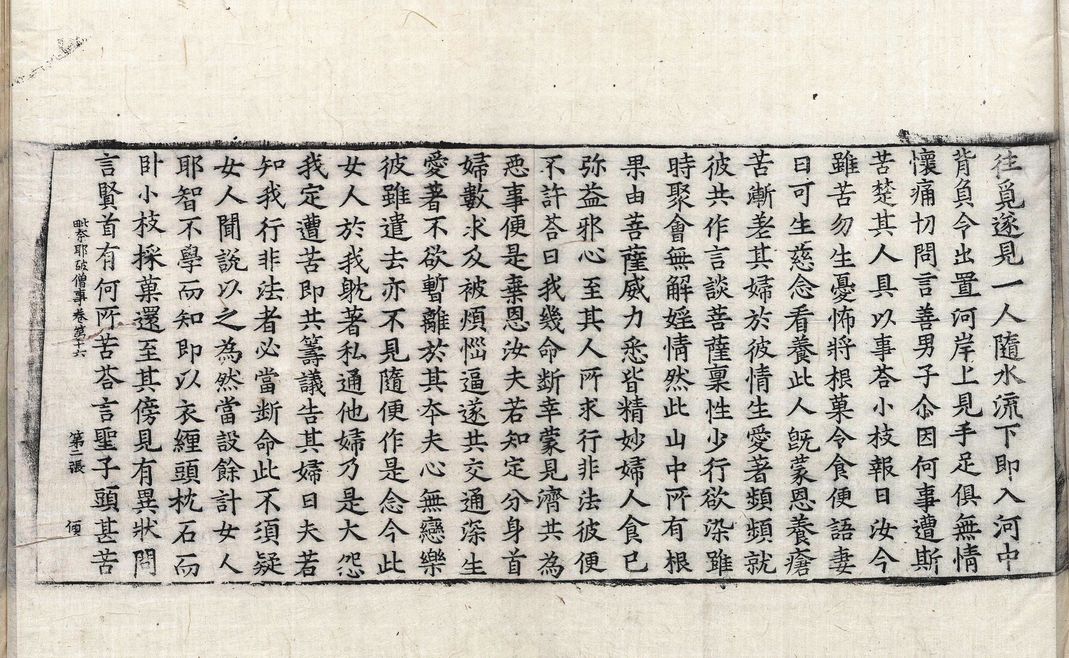 往覓遂見一人隨水流下即入河中
背負令出置河岸上見手足俱無情
懷痛切問言善男子尒因何事遭斯
苦楚其人具以事荅小枝報曰汝今
雖苦勿生憂怖將根菓令食便語妻
曰可生慈念看養此人旣蒙恩養瘡
苦漸老其婦於彼情生愛著頻頻就
彼共作言談菩薩稟性少行欲染雖
時聚會無解婬情然此山中所有根
果由菩薩威力悉皆精妙婦人食已
弥益邪心至其人所求行非法彼便
不許荅曰我幾命断幸蒙見濟共為
惡事便是棄恩汝夫若知定分身首
婦數求及被煩惱逼遂共交通深生
愛著不欲暫離於其夲夫心無戀樂
彼雖遣去亦不見隨便作是念今此
女人於我躭著私通他婦乃是大怨
我定遭苦即共籌議告其婦曰夫若
知我行非法者必當断命此不須疑
女人聞說以之為然當設餘計女人
耶智不學而知即以衣纏頭枕石而
卧小枝採菓還至其傍見有異狀問
言賢首有何所苦荅言聖子頭甚苦
毗奈耶破僧事卷第十六 第二張